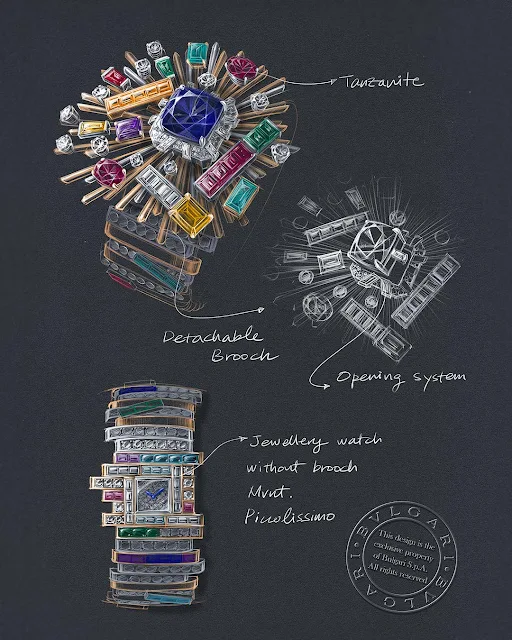 Tanzanite
Detachable
Brooch
Opening system
Jewellery watch
without brooch
Mvnt.
Piccolissimo
BVLGARI • BVLGARI •
This design is the
exclusive property
of Bulgari S.p.A.
All rights reserved